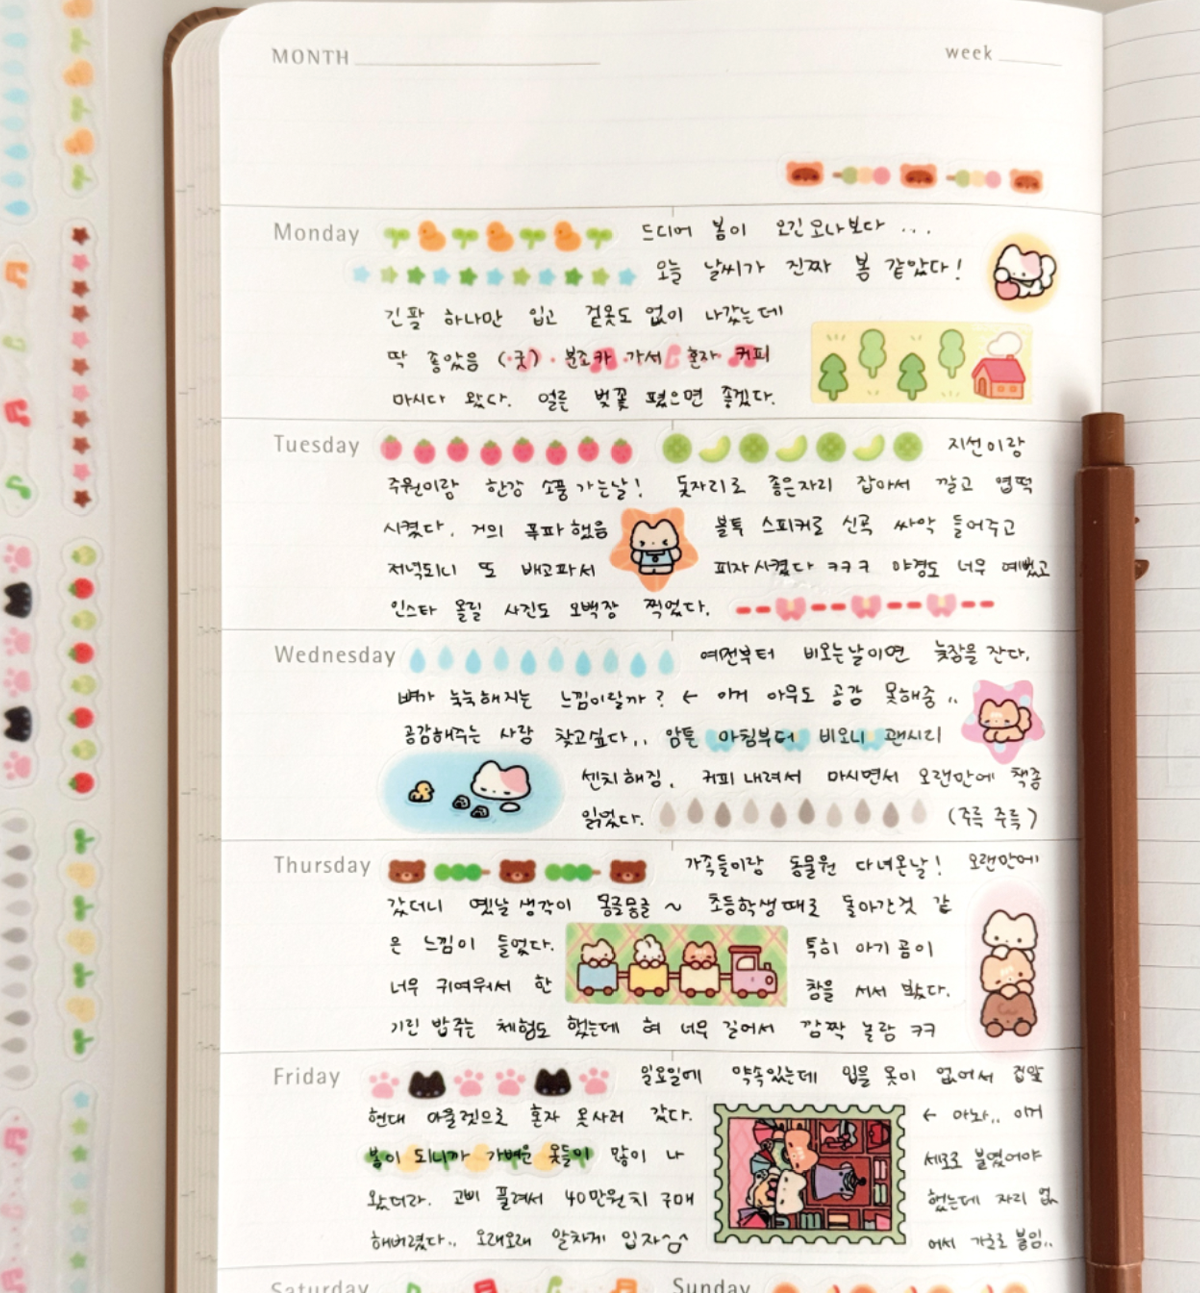 MONTH
week
Monday
드디어 봄이 오긴 오나보다 ...
오늘 날씨가 진짜 봄 같았다!
긴팔 하나만 입고 겉옷도 없이 나갔는데
딱 좋았음 (굿) 분조카 가서 혼자 커피
마시다 왔다. 얼른 벚꽃 폈으면 좋겠다.
Tuesday
지선이랑
주원이랑 한강 소풍 가는날! 돗자리로 좋은자리 잡아서 깔고 엽떡
시켰다. 거의 폭파했음 블투 스피커로 신곡 싸악 들어주고
저녁되니 또 배고파서 피자시켰다 ㅋㅋㅋ 야경도 너무 예뻤고
인스타 올릴 사진도 오백장 찍었다.
Wednesday
여전부터 비오는날이면 늦잠을 잔다.
뼈가 눅눅해지는 느낌이랄까? ← 이거 아무도 공감 못해줌..
공감해주는 사람 찾고싶다.. 암튼 아침부터 비오니 괜시리
센치해짐. 커피내려서 마시면서 오랜만에 책좀
읽었다. (주륵 주륵)
Thursday
가족들이랑 동물원 다녀온날! 오랜만에
갔더니 옛날 생각이 몽글몽글 ~ 초등학생때로 돌아간것 같
은 느낌이 들었다. 특히 아기곰이
너무 귀여워서 한 참을 서서 봤다.
기린 밥주는 체험도 했는데 혀 너무 길어서 깜짝 놀람 ㅋㅋ
Friday
일요일에 약속있는데 입을 옷이 없어서 집앞
현대 아울렛으로 혼자 옷사러 갔다. ← 아놔.. 이거
봄이 되니까 가벼운 옷들이 많이 나 세로로 붙였어야
왔더라. 고삐 풀려서 40만원치 구매 했는데 자리 없
해버렸다.. 오래오래 알차게 입자^^ 어서 가로로 붙임..
Saturday
Sunday